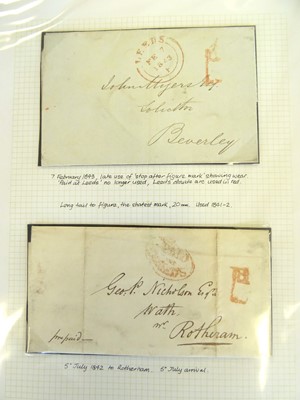 LEEDS
1843
John Myers Esq
Solicitor
Beverley
7 February 1843, late use of 'stop after figure mark' showing wear.
'Paid at Leeds' no longer used, Leeds are used in red.
Long tail to figure, the shortest mark, 20mm. Used 1841-2.
Geo. Nicholson Esqr.
Wath
nr. Rotheram.
prepaid
5th July 1842 to Rotherham. 5th July arrival.